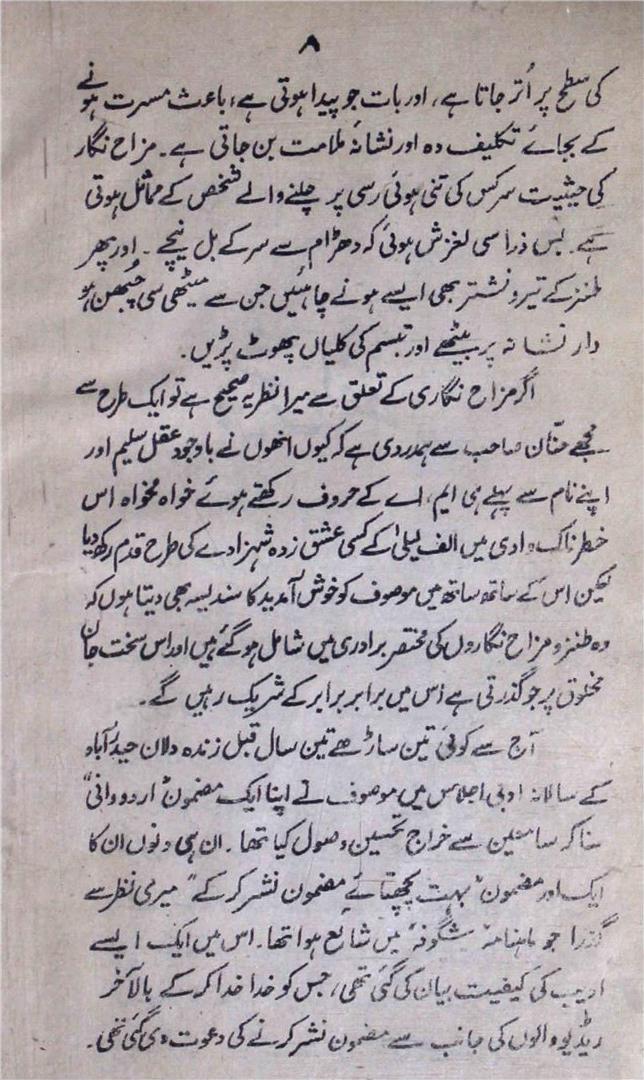 ۸
کی سطح پر اُتر جاتا ہے، اور بات جو پیدا ہوتی ہے، باعث مسرت ہونے
کے بجائے تکلیف دہ اور نشانۂ ملامت بن جاتی ہے۔ مزاح نگار
کی حیثیت سرکس کی تنی ہوئی رسی پر چلنے والے شخص کے مماثل ہوتی
ہے۔ بس ذرا سی لغزش ہوئی کہ دھڑام سے سر کے بل نیچے۔ اور پھر
طنز کے تیر و نشتر بھی ایسے ہونے چاہئیں جن سے میٹھی سی چُبھن ہو
دار نشانہ پر بیٹھے اور تبسم کی کلیاں پھوٹ پڑیں۔
اگر مزاح نگاری کے تعلق سے میرا نظریہ صحیح ہے تو ایک طرح سے
مجھے حنّان صاحب سے ہمدردی ہے کہ کیوں انھوں نے باوجود عقل سلیم اور
اپنے نام سے پہلے ہی ایم، اے کے حروف رکھتے ہوئے خواہ مخواہ اس
خطرناک وادی میں الف لیلیٰ کے کسی عشق زدہ شہزادے کی طرح قدم رکھ دیا
لیکن اس کے ساتھ ساتھ میں موصوف کو خوش آمدید کا سندیسہ بھی دیتا ہوں کہ
وہ طنز و مزاح نگاروں کی مختصر برادری میں شامل ہو گئے ہیں اور اس سخت جان
مخلوق پر جو گذرتی ہے اس میں برابر برابر کے شریک رہیں گے۔
آج سے کوئی تین ساڑھے تین سال قبل زندہ دلان حیدرآباد
کے سالانہ ادبی اجلاس میں موصوف نے اپنا ایک مضمون "اردو دانی"
سنا کر سامعین سے خراج تحسین وصول کیا تھا۔ ان ہی دنوں ان کا
ایک اور مضمون "بہت پچھتائے مضمون نشر کر کے" میری نظر سے
گذرا جو ماہنامہ شگوفہ میں شائع ہوا تھا۔ اس میں ایک ایسے
ادیب کی کیفیت بیان کی گئی تھی، جس کو خدا خدا کر کے بالآخر
ریڈیو والوں کی جانب سے مضمون نشر کرنے کی دعوت دی گئی تھی۔